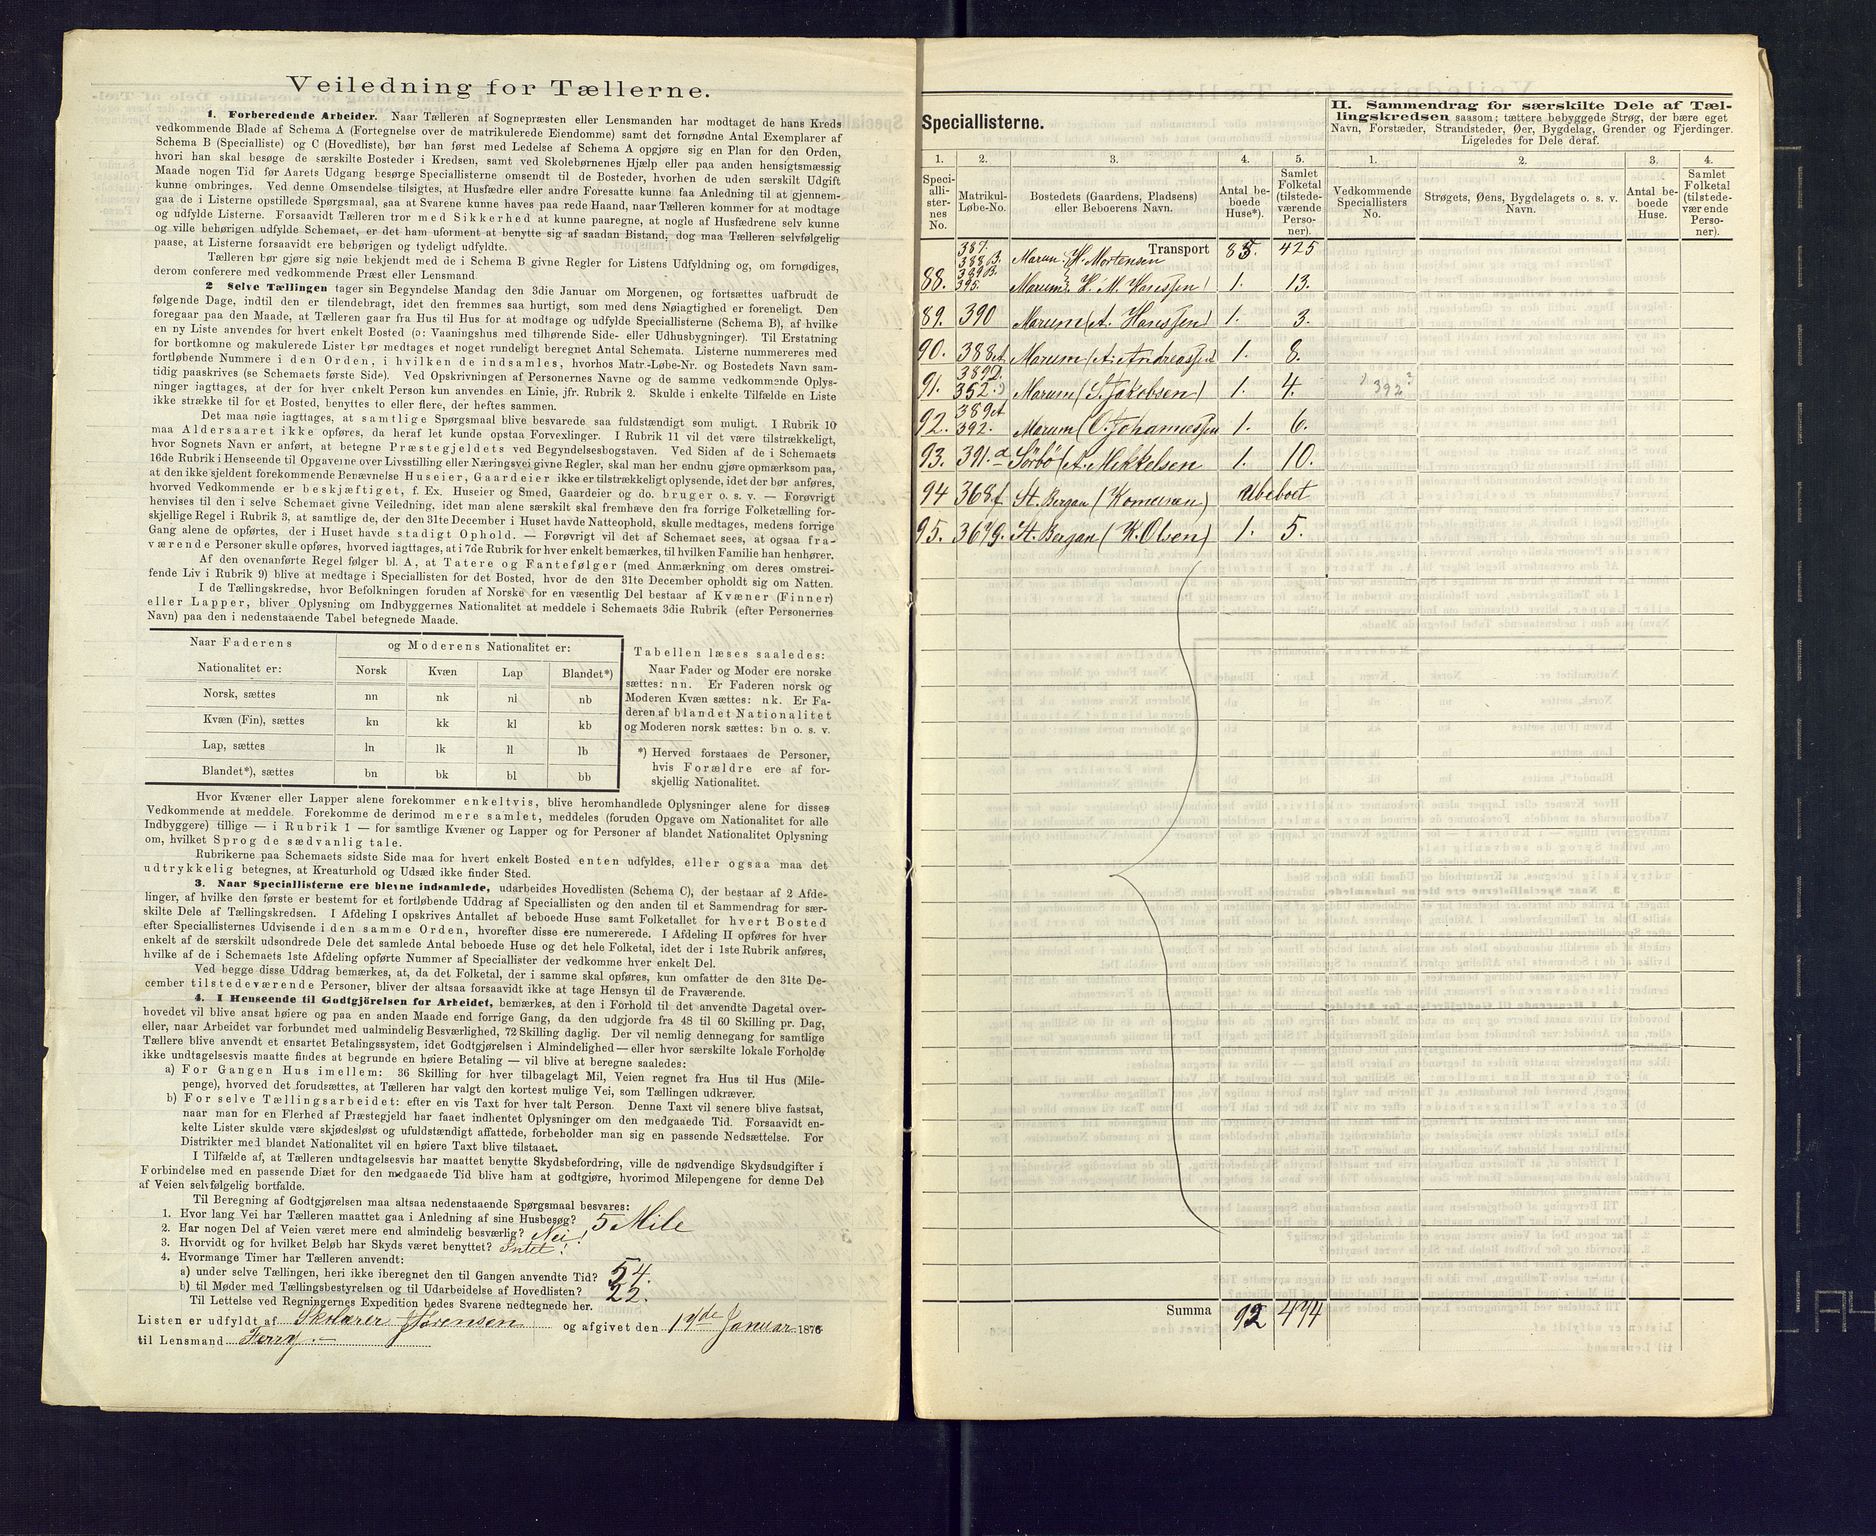 Veiledning for Tællerne.
1. Forberedende Arbeider. Naar Tælleren af Sognepræsten eller Lensmanden har modtaget de hans Kreds
vedkommende Blade af Schema A (Fortegnelse over de matrikulerede Eiendomme) samt det fornødne Antal Exemplarer af
Schema B (Specialliste) og C (Hovedliste), bør han først med Ledelse af Schema A opgjøre sig en Plan for den Orden,
hvori han skal besøge de særskilte Bosteder i Kredsen, samt ved Skolebørnenes Hjælp eller paa anden hensigtsmæssig
Maade nogen Tid før Aarets Udgang besørge Speciallisterne omsendt til de Bosteder, hvorhen de uden særskilt Udgift
kunne ombringes. Ved denne Omsendelse tilsigtes, at Husfædre eller andre Foresatte kunne faa Anledning til at gjennem-
gaa de i Listerne opstillede Spørgsmaal, saa at Svarene kunne haves paa rede Haand, naar Tælleren kommer for at modtage
og udfylde Listerne. Forsaavidt Tælleren tror med Sikkerhed at kunne paaregne, at nogle af Husfædrene selv kunne
og ville behørigen udfylde Schemaet, er det ham uforment at benytte sig af saadan Bistand, dog maa Tælleren selvfølgelig
paase, at Listerne forsaavidt ere behørigen og tydeligt udfyldte.
Tælleren bør gjøre sig nøie bekjendt med de i Schema B givne Regler for Listens Udfyldning og, om fornødiges,
derom conferere med vedkommende Præst eller Lensmand.
2 Selve Tællingen tager sin Begyndelse Mandag den 3die Januar om Morgenen, og fortsættes uafbrudt de
følgende Dage, indtil den er tilendebragt, idet den fremmes saa hurtigt, som med dens Nøiagtighed er foreneligt. Den
foregaar paa den Maade, at Tælleren gaar fra Hus til Hus for at modtage og udfylde Speciallisterne (Schema B), af hvilke
en ny Liste anvendes for hvert enkelt Bosted (ɔ: Vaaningshus med tilhørende Side- eller Udhusbygninger). Til Erstatning
for bortkomne og makulerede Lister bør medtages et noget rundeligt beregnet Antal Schemata. Listerne nummereres med
fortløbende Nummere i den Orden, i hvilken de indsamles, hvorhos Matr.-Løbe-Nr. og Bostedets Navn sam-
tidig paaskrives (se Schemaets første Side). Ved Opskrivningen af Personernes Navne og de samme vedkommende Oplys-
ninger iagttages, at der for hver enkelt Person kun anvendes en Linie, jfr. Rubrik 2. Skulde i enkelte Tilfælde en Liste
ikke strække til for et Bosted, benyttes to eller flere, der heftes sammen.
Det maa nøie iagttages, at samtlige Spørgsmaal blive besvarede saa fuldstændigt som muligt. I Rubrik 10
maa Aldersaaret ikke opføres, da heraf let kunde opstaa Forvexlinger. I Rubrik 11 vil det være tilstrækkeligt,
hvor Sognets Navn er anført, at betegne Præstegjeldets ved Begyndelsesbogstaven. Ved Siden af de i Schemaets
16de Rubrik i Henseende til Opgaverne over Livsstilling eller Næringsvei givne Regler, skal man her endnu gjøre opmærksom paa,
at den ikke sjeldent forekommende Benævnelse Huseier, Gaardeier ikke er tilstrækkeligt oplysende, idet der bør anføres,
hvorved Vedkommende er beskjæftiget, f. Ex. Huseier og Smed, Gaardeier og do. bruger o. s. v. — Forøvrigt
henvises til den i selve Schemaet givne Veiledning, idet man alene særskilt skal fremhæve den fra forrige Folketælling for-
skjellige Regel i Rubrik 3, at samtlige de, der den 31te December i Huset havde Natteophold, skulle medtages, medens forrige
Gang alene de opførtes, der i Huset havde stadigt Ophold. — Forøvrigt vil det af Schemaet sees, at ogsaa fra-
værende Personer skulle opføres, hvorved iagttages, at i 7de Rubrik for hver enkelt bemærkes, til hvilken Familie han henhører.
Af den ovenanførte Regel følger bl. A, at Tatere og Fantefølger (med Anmærkning om deres omstrei-
fende Liv i Rubrik 9) blive at medtage i Speciallisten for det Bosted, hvor de den 31te December opholdt sig om Natten.
I de Tællingskredse, hvor Befolkningen foruden af Norske for en væsentlig Del bestaar af Kvæner (Finner)
eller Lapper, bliver Oplysning om Indbyggernes Nationalitet at meddele i Schemaets 3die Rubrik (efter Personernes
Navn) paa den i nedenstaaende Tabel betegnede Maade.
Naar Faderens og Moderens Nationalitet er:
Nationalitet er: Norsk Kvæn Lap Blandet*)
Norsk, sættes nn nk nl nb
Kvæn (Fin), sættes kn kk kl kb
Lap, sættes ln lk ll lb
Blandet*), sættes bn bk bl bb
Tabellen læses saaledes:
Naar Fader og Moder ere norske
sættes: nn. Er Faderen norsk og
Moderen Kvæn sættes: nk. Er Fa-
deren af blandet Nationalitet
og Moderen norsk sættes: bn o. s. v.
*) Herved forstaaes de Personer,
hvis Forældre ere af for-
skjellig Nationalitet.
Hvor Kvæner eller Lapper alene forekommer enkeltvis, blive heromhandlede Oplysninger alene for disses
Vedkommende at meddele. Forekomme de derimod mere samlet, meddeles (foruden Opgave om Nationalitet for alle
Indbyggere) tillige — i Rubrik 1 — for samtlige Kvæner og Lapper og for Personer af blandet Nationalitet Oplysning
om, hvilket Sprog de sædvanlig tale.
Rubrikerne paa Schemaets sidste Side maa for hvert enkelt Bosted enten udfyldes, eller ogsaa maa det
udtrykkelig betegnes, at Kreaturhold og Udsæd ikke finder Sted.
3. Naar Speciallisterne ere blevne indsamlede, udarbeides Hovedlisten (Schema C), der bestaar af 2 Afde-
linger, af hvilke den første er bestemt for et fortløbende Uddrag af Speciallisten og den anden til et Sammendrag for sær-
skilte Dele af Tællingskredsen. I Afdeling I opskrives Antallet af beboede Huse samt Folketallet for hvert Bosted
efter Speciallisternes Udvisende i den samme Orden, hvorefter disse ere numererede. I Afdeling II opføres for hver
enkelt af de særskilt udsondrede Dele det samlede Antal beboede Huse og det hele Folketal, idet der i 1ste Rubrik anføres,
hvilke af de i Schemaets 1ste Afdeling opførte Numere af Speciallister der vedkomme hver enkelt Del.
Ved begge disse Uddrag bemærkes, at, da det Folketal, der i samme skal opføres, kun omfatter de den 31te De-
cember tilstedeværende Personer, bliver der altsaa forsaavidt ikke at tage Hensyn til de Fraværende.
4. I Henseende til Godtgjörelsen for Arbeidet, bemærkes, at den i Forhold til det anvendte Dagetal over-
hovedet vil blive ansat høiere og paa en anden Maade end forrige Gang, da den udgjorde fra 48 til 60 Skilling pr. Dag,
eller, naar Arbeidet var forbundet med ualmindelig Besværlighed, 72 Skilling daglig. Der vil nemlig dennegang for samtlige
Tællere blive anvendt et ensartet Betalingssystem, idet Godtgjørelsen i Almindelighed — eller hvor særskilte lokale Forholde
ikke undtagelsesvis maatte findes at begrunde en høiere Betaling — vil blive at beregne saaledes:
a) For Gangen Hus imellem: 36 Skilling for hver tilbagelagt Mil, Veien regnet fra Hus til Hus (Mile-
penge), hvorved det forudsættes, at Tælleren har valgt den kortest mulige Vei, som Tællingen udkræver.
b) For selve Tællingsarbeidet: efter en vis Taxt for hver talt Person. Denne Taxt vil senere blive fastsat,
naar man for en Flerhed af Præstegjeld har faaet indhentet Oplysninger om den medgaaede Tid. Forsaavidt en-
kelte Lister skulde være skjødesløst og ufuldstændigt affattede, forbeholder man sig en passende Nedsættelse. For
Distrikter med blandet Nationalitet vil en høiere Taxt blive tilstaaet.
I Tilfælde af, at Tælleren undtagelsesvis har maattet benytte Skydsbefordring, ville de nødvendige Skydsudgifter i
Forbindelse med en passende Diæt for den medgaaede Tid blive ham at godtgjøre, hvorimod Milepengene for denne Del
af Veien selvfølgelig bortfalde.
Til Beregning af Godtgjørelsen maa altsaa nedenstaaende Spørgsmaal besvares:
1. Hvor lang Vei har Tælleren maattet gaa i Anledning af sine Husbesøg? 5 Mile
2. Har nogen Del af Veien været mere end almindelig besværlig? Nei!
3. Hvorvidt og for hvilket Beløb har Skyds været benyttet? Intet!
4. Hvormange Timer har Tælleren anvendt:
a) under selve Tællingen, heri ikke iberegnet den til Gangen anvendte Tid? 54.
b) til Møder med Tællingsbestyrelsen og til Udarbeidelse af Hovedlisten? 22.
Til Lettelse ved Regningernes Expedition bedes Svarene nedtegnede her.
Listen er udfyldt af Skolærer Jörensen og afgivet den 17de Januar 1876
til Lensmand Ferry.
Speciallisterne.
II. Sammendrag for særskilte Dele af Tæl-
lingskredsen saasom: tættere bebyggede Strøg, der bære eget
Navn, Forstæder, Strandsteder, Øer, Bygdelag, Grender og Fjerdinger.
Ligeledes for Dele deraf.
1. 2. 3. 4. 5. 1. 2. 3. 4.
Speci-
allis-
ternes
No.
Matrikul-
Løbe-No.
Bostedets (Gaardens, Pladsens)
eller Beboerens Navn.
Antal be-
boede
Huse*).
Samlet
Folketal
(tilstede-
værende
Perso-
ner).
Vedkommende
Speciallisters
No.
Strøgets, Øens, Bygdelagets o. s. v.
Navn.
Antal be-
boede
Huse.
Samlet
Folketal
(tilstede-
værende
Perso-
ner).
Transport 85 425
387. 388B. Marum (H. Mortensen
88. 389B. 395. Marum (H. M. Hanssen) 1. 13.
89. 390 Marum (A. Hanssen) 1. 3.
90. 388A. Marum (A. Andreassen 1. 8.
91. 389D. 352. Marum (S. Jakobsen) 1. 4. 392?
92. 389A 392. Marum (O. Johannessen 1. 6.
93. 391.a Sörbö (A. Mikkelsen 1. 10.
94 368f St. Bergan (Komersen) Ubeboet
95. 367g. St. Bergan (K. Olsen) 1. 5.
Summa 92 474